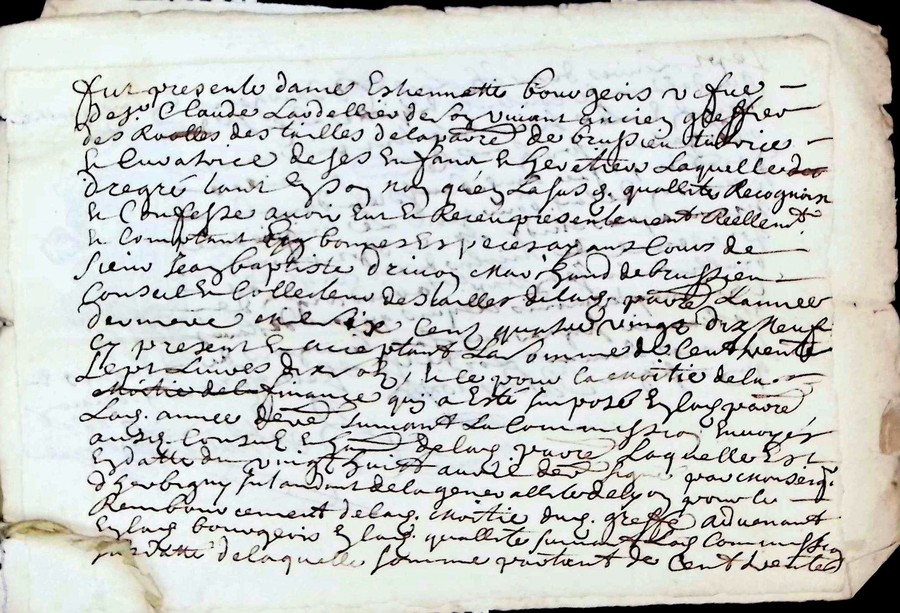 fut presente dame Estiennette bourgeois vefve
de sr. Claude Lardellier de son vivant ancien greffier
des Roolles des tailles de la parre. de brussieu tutrice
Et Curatrice de ses Enfans Et heretiers Laquelle de
gré tant En son nom qu'en La susd. quallité Recognoist
Et Confesse avoir Eut Et Receu presentement Reellemt.
Et Comptant bonnes Especes ayans Cours de
sieur Jean baptiste marchand de brussieu
Consul Et Collecteur des tailles de lad. parre. L'année
derniere mil six Cent quatre vingt dix Neuf
Cy present Et acceptant La somme de Cent trente
sept Livres dix sols, Et ce pour la moitié de la
finance quy a Esté Imposé En lad. parre.
Lad. année derre. suivant La Commission Envoyée
ausd. Consul de lad. parre. Laquelle Est
En datte du vingt huit derr. signé par monseigr.
d'herbigny Intandant de la generallité de Lyon pour le
Rembourcement de lad. moitié dud. greffe advenant
En lad. bourgeois En lad. quallité suivant Lad. Commission
datté de laquelle somme partent de Cent trente